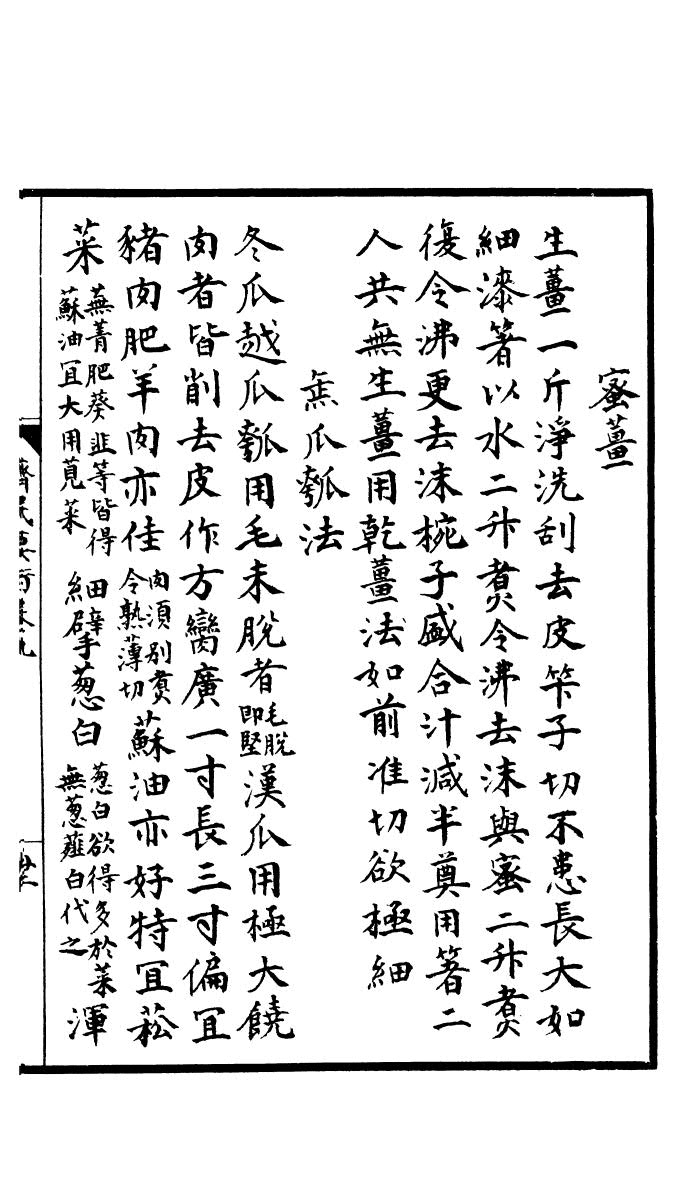 蜜薑
生薑一斤淨洗刮去皮竿子切不患長大如
細漆箸以水二升煑令沸去沫與蜜二升煑
復令沸更去沫椀子盛合汁減半奠用箸二
人共無生薑用乾薑法如前准切欲極細
缹瓜瓠法
冬瓜越瓜瓠用毛未脫者毛脫即堅漢瓜用極大饒
肉者皆削去皮作方臠廣一寸長三寸偏宜
豬肉肥羊肉亦佳肉須别煑令熟薄切蘇油亦好特宜菘
菜蕪菁肥葵韭等皆得蘇油宜大用莧菜細擘葱白葱白欲得多於菜無葱薤白代之渾